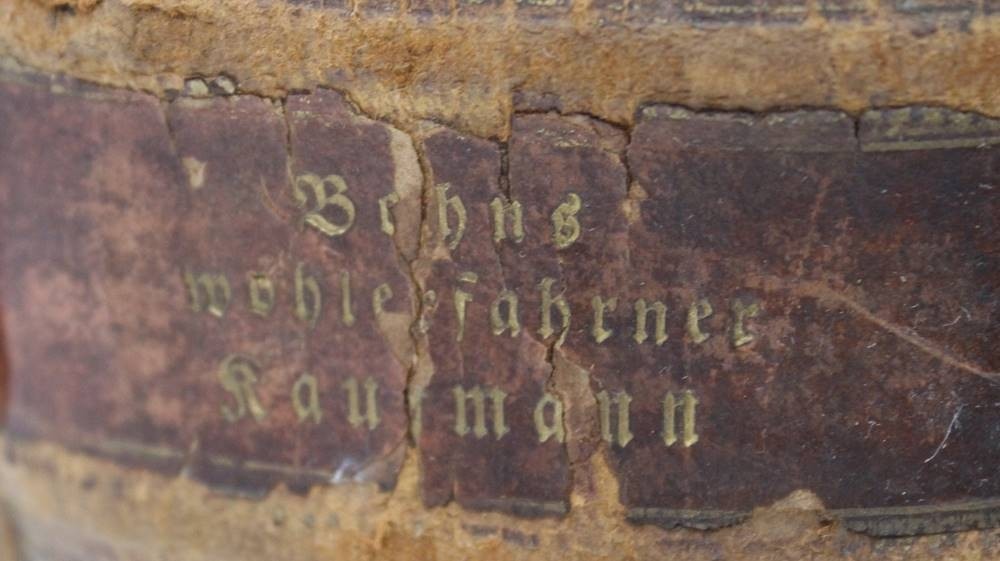 Behns
wohlerfahrner
Kaufmann